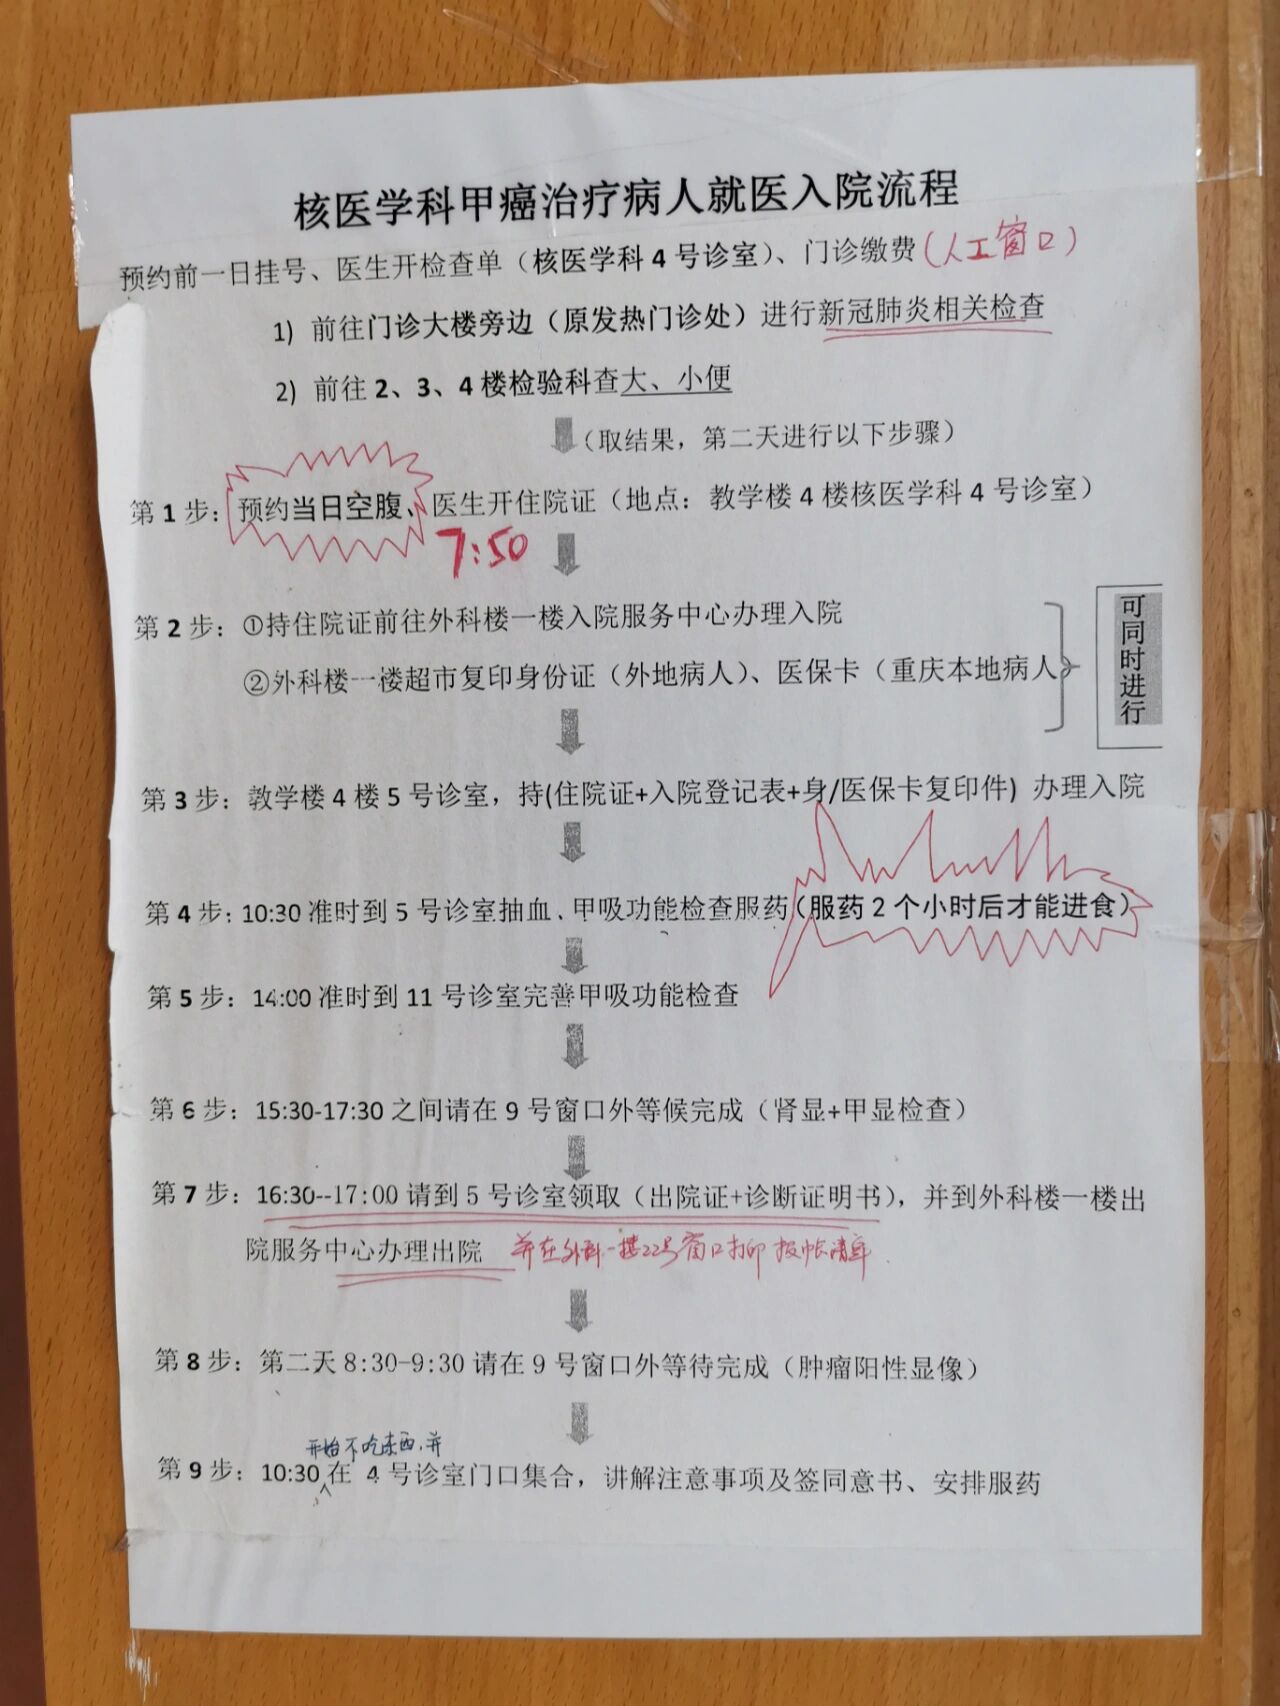 核医学科甲癌治疗病人就医入院流程
预约前一日挂号、医生开检查单（核医学科4号诊室）、门诊缴费（人工窗口）
1) 前往门诊大楼旁边（原发热门诊处）进行新冠肺炎相关检查
2) 前往2、3、4楼检验科查大、小便
（取结果，第二天进行以下步骤）
第1步：预约当日空腹、医生开住院证（地点：教学楼4楼核医学科4号诊室）
7:50
第2步：①持住院证前往外科楼一楼入院服务中心办理入院
②外科楼一楼超市复印身份证（外地病人）、医保卡（重庆本地病人
可同时进行
第3步：教学楼4楼5号诊室，持(住院证+入院登记表+身/医保卡复印件) 办理入院
第4步：10:30准时到5号诊室抽血、甲吸功能检查服药（服药2个小时后才能进食）
第5步：14:00准时到11号诊室完善甲吸功能检查
第6步：15:30-17:30之间请在9号窗口外等候完成（肾显+甲显检查）
第7步：16:30--17:00请到5号诊室领取（出院证+诊断证明书），并到外科楼一楼出
院服务中心办理出院 并在外科一楼22号窗口打印报帐清单.
第8步：第二天8:30-9:30请在9号窗口外等待完成（肿瘤阳性显像）
开始不吃东西,并
第9步：10:30在 4号诊室门口集合，讲解注意事项及签同意书、安排服药